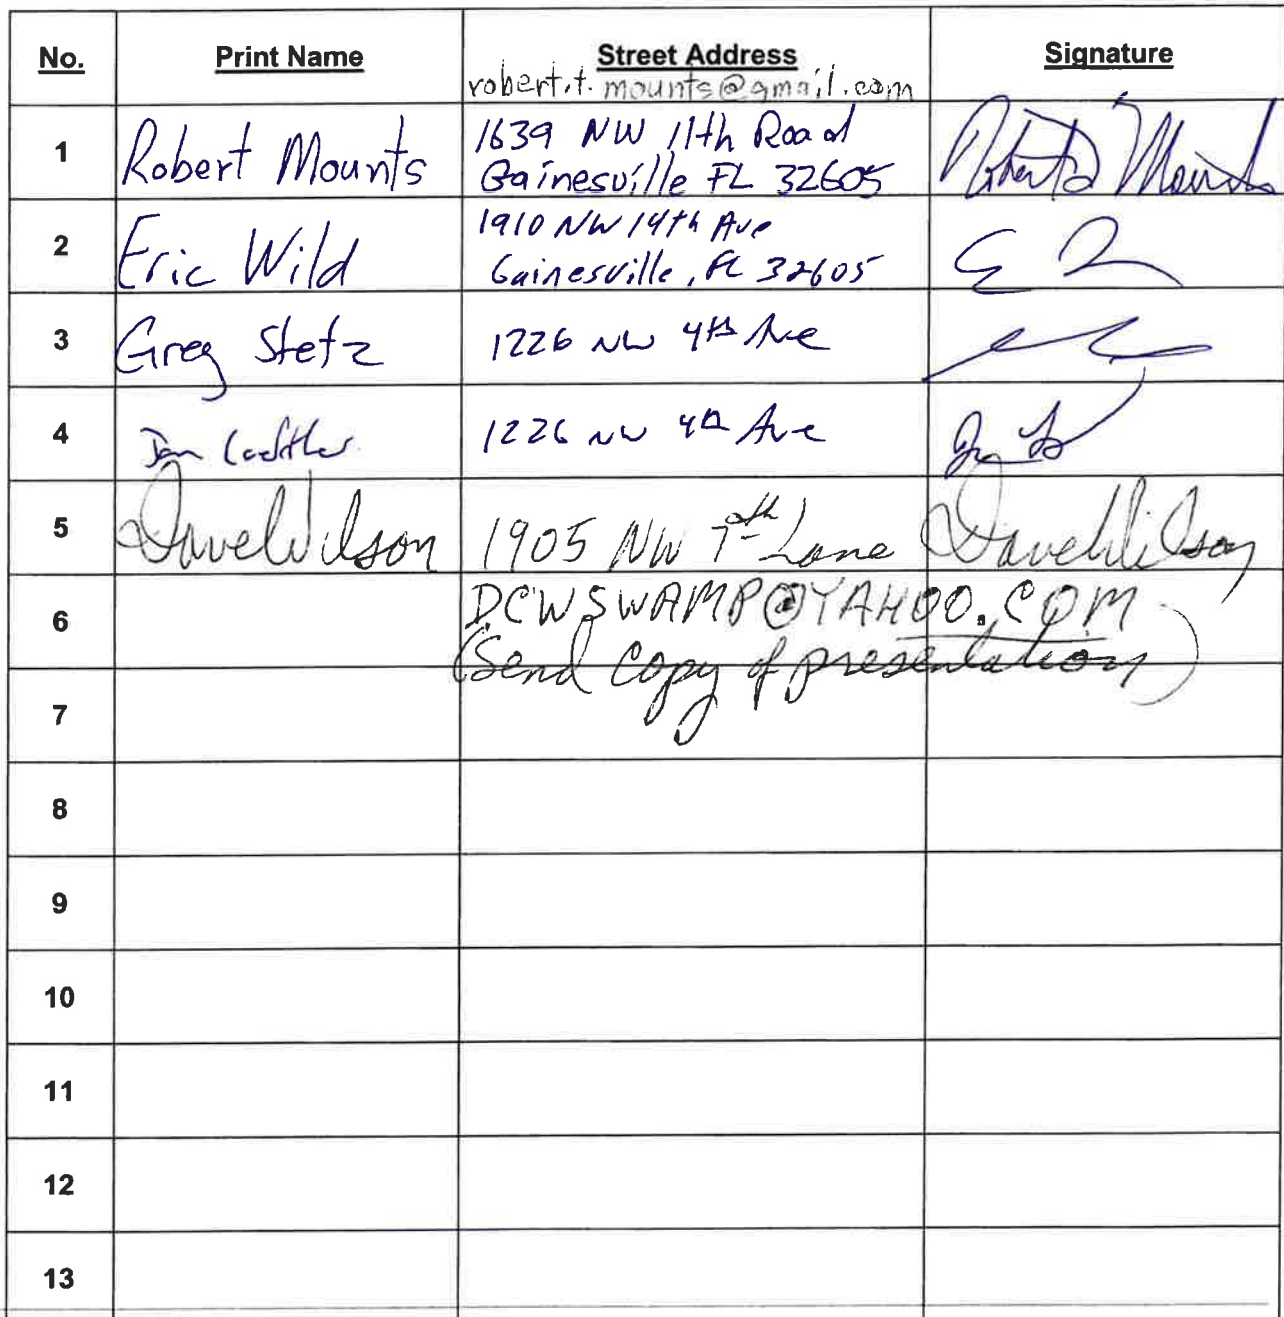 No. Print Name Street Address Signature
robert.t.mounts@gmail.com
1 Robert Mounts 1639 NW 11th Road
Gainesville FL 32605
2 Eric Wild 1910 NW 14th Ave
Gainesville, FL 32605
3 Greg Stetz 1226 NW 4th Ave
4 1226 NW 4th Ave
5 Dave Wilson 1905 NW 7th Lane Dave Wilson
6 DCWSWAMP@YAHOO.COM
(Send Copy of presentation)
7
8
9
10
11
12
13